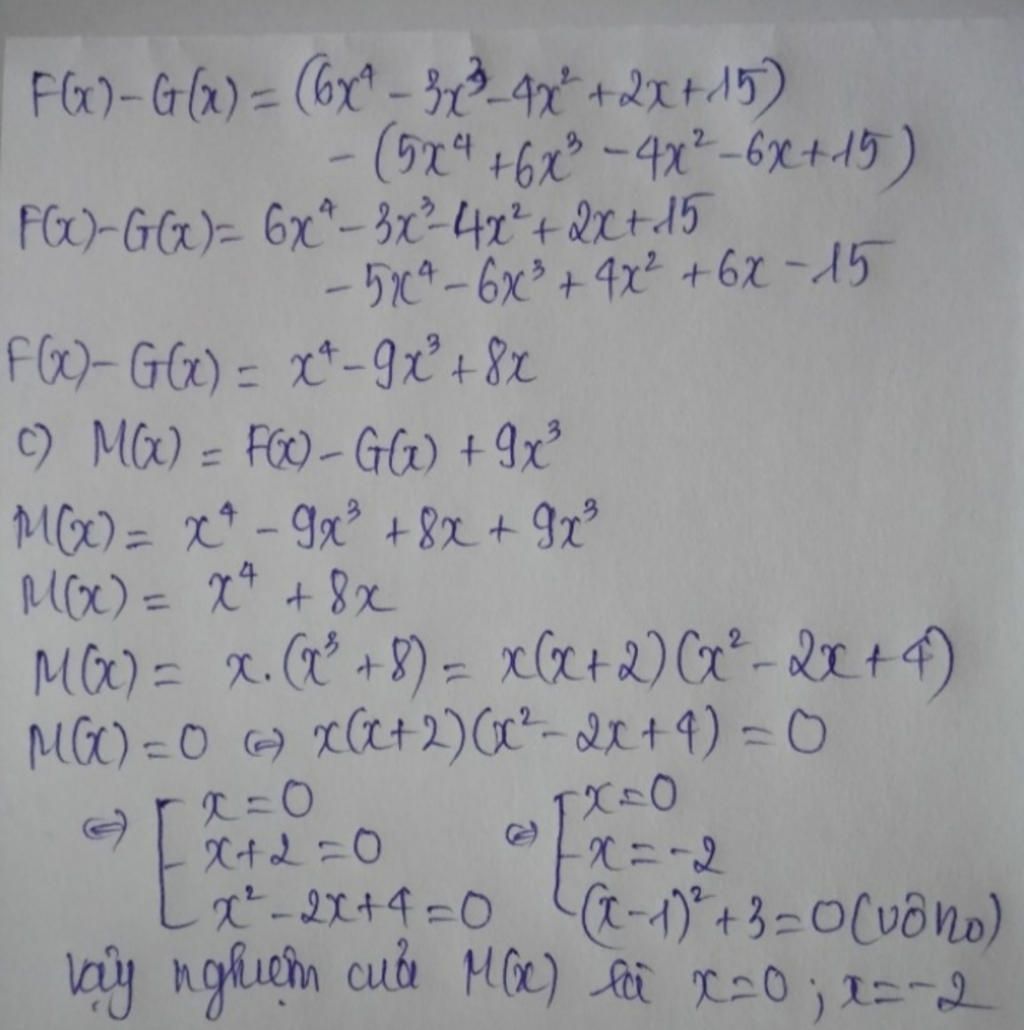 F(x)-G(x) = (6x⁴ - 3x³ - 4x² + 2x + 15)
- (5x⁴ + 6x³ - 4x² - 6x + 15)
F(x)-G(x) = 6x⁴ - 3x³ - 4x² + 2x + 15
- 5x⁴ - 6x³ + 4x² + 6x - 15
F(x)-G(x) = x⁴ - 9x³ + 8x
c) M(x) = F(x) - G(x) + 9x³
M(x) = x⁴ - 9x³ + 8x + 9x³
M(x) = x⁴ + 8x
M(x) = x.(x³ + 8) = x(x+2)(x² - 2x + 4)
M(x) = 0 ⇔ x(x+2)(x² - 2x + 4) = 0
⇔ [ x = 0 ⇔ [ x = 0
x + 2 = 0 x = -2
x² - 2x + 4 = 0 (x-1)² + 3 = 0 (vô no)
Vậy nghiệm của M(x) là x = 0 ; x = -2